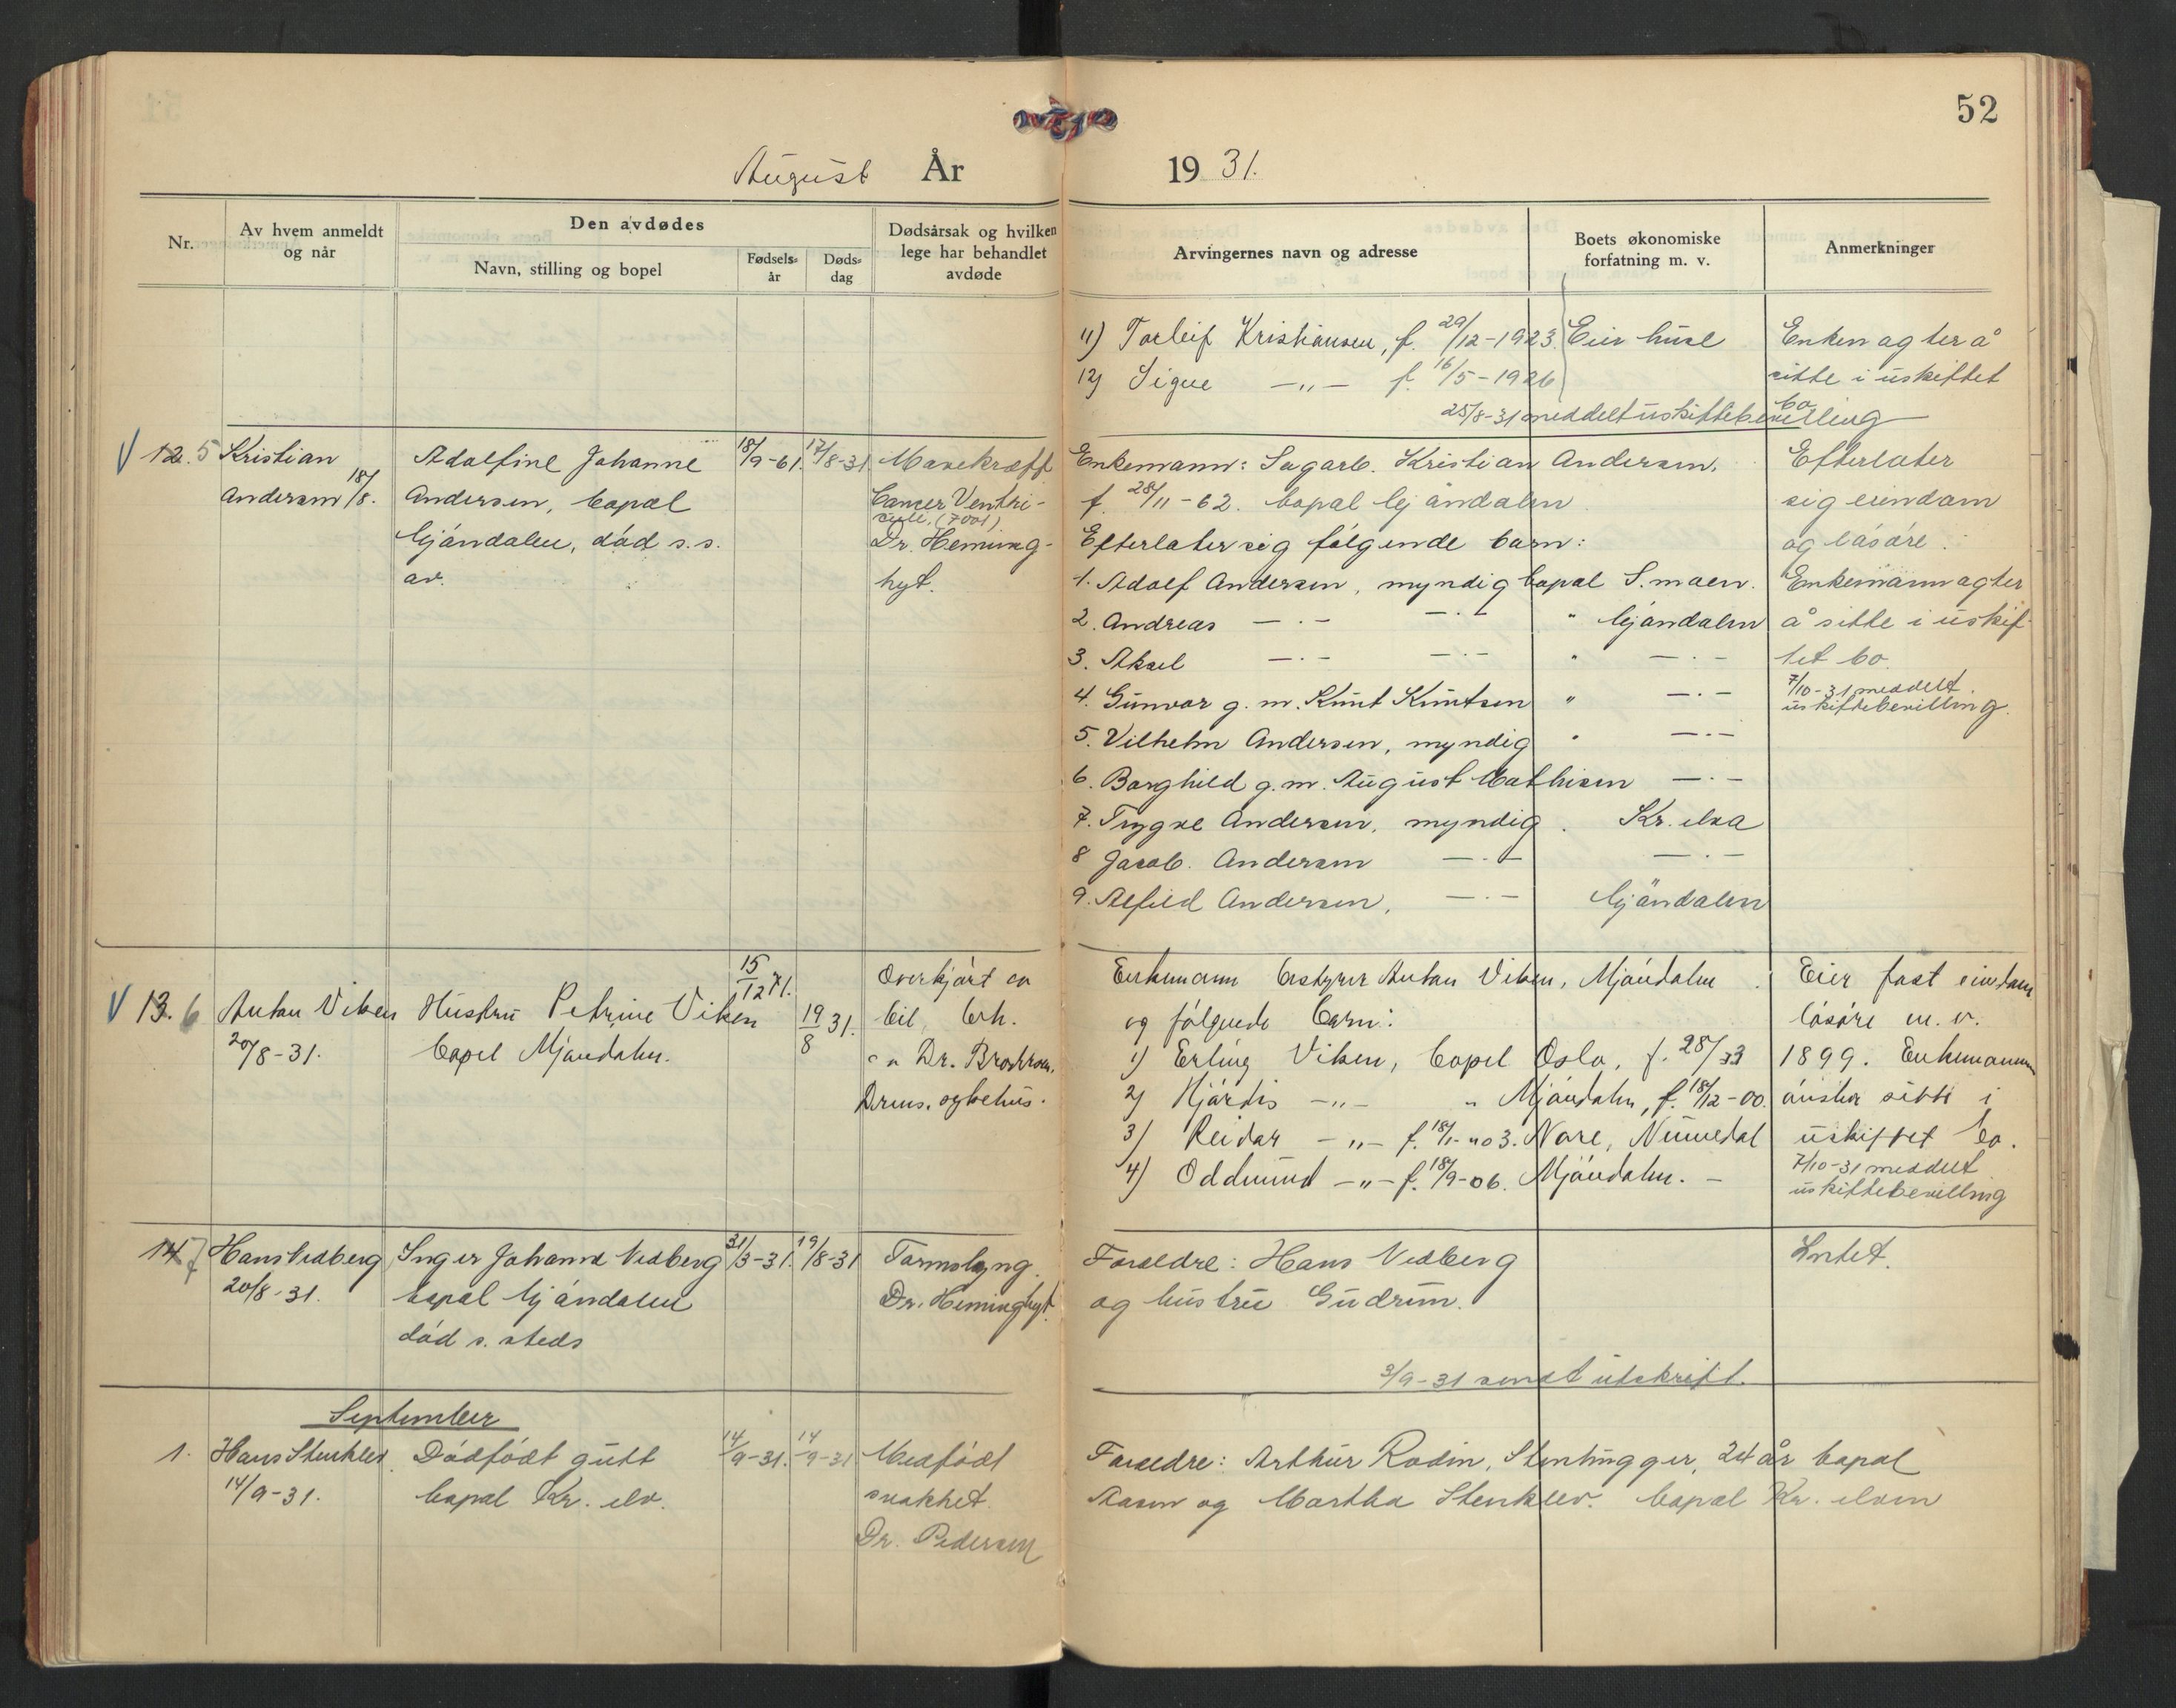 52
August År 1931.
Nr.
Av hvem anmeldt
og når
Den avdødes
Navn, stilling og bopel
Fødsels-
år
Døds-
dag
Dødsårsak og hvilken
lege har behandlet
avdøde
Arvingernes navn og adresse
Boets økonomiske
forfatning m. v.
Anmerkninger
11) Torleif Kristiansen, f. 29/12-1923.
12) Signe -"- f. 16/5-1926
Eier huse
Enken agter å
sitte i uskiftet
bo
25/8-31 meddelt uskiftebevilling
12. 5 Kristian
Andersen 18/8.
Adolfine Johanne
Andersen, bopæl
Mjøndalen, død s. s.
av.
18/9-61.
17/8-31
Mavekræft
Cancer Ventri-
culi, (7001)
Dr. Heming-
hyt.
Enkemann: Sagarb. Kristian Andersen,
f. 28/11-62. bopæl Mjøndalen
Efterlater sig følgende barn:
1. Adolf Andersen, myndig bopæl S. moen.
2. Andreas -.- -.- " Mjøndalen
3. Aksel -.- -.- " -.-
4. Gunvor g. m. Knut Knutsen " -.-
5. Vilhelm Andersen, myndig " -.-
6. Borghild g. m. August Mathisen -.-
7. Trygve Andersen, myndig . Kr. elva
8 Jacob. Andersen -.- -.-
9. Alfild Andersen, -.- Mjøndalen
Efterlater
sig eiendom
og løsøre.
Enkemann agter
å sitte i uskif-
tet bo.
7/10-31 meddelt
uskiftebevilling.
13. 6 Anton Viken
20/8-31.
Hustru Petrine Viken
bopel Mjøndalen.
15/12 71.
19/8 31.
Overkjørt av
bil, beh.
av Dr. Brostrøm,
Drms. sykehus.
Enkemann bestyrer Anton Viken, Mjøndalen
og følgende barn:
1) Erling Viken, bopel Oslo, f. 28/33
2) Hjørdis -"- " Mjøndalen, f. 18/12-00.
3) Reidar -"- f. 18/1-03. Nore, Numedal
4) Oddmund -"- f. 18/9-06. Mjøndalen. -
Eier fast eiendom
løsøre m. v.
1899. Enkemannen
ønsker sitte i
uskiftet bo.
7/10-31 meddelt
uskiftebevilling
14. 7 Hans Vedberg
20/8-31.
Inger Johanne Vedberg
bopæl Mjøndalen
død s. steds
31/3-31.
19/8-31
Tarmslyng.
Dr. Heminghyt.
Foreldre: Hans Vedberg
og hustru Gudrun.
Intet.
3/9-31 sendt utskrift.
September
1. Hans Stenklev
14/9-31.
Dødfødt gutt
bopæl Kr. elv.
14/9-31.
14/9-31
Medfødt
svakhet.
Dr. Pedersen
Foreldre: Arthur Rodin, Stenhugger, 24 år bopæl
Aasen og Martha Stenklev. bopæl Kr. elven